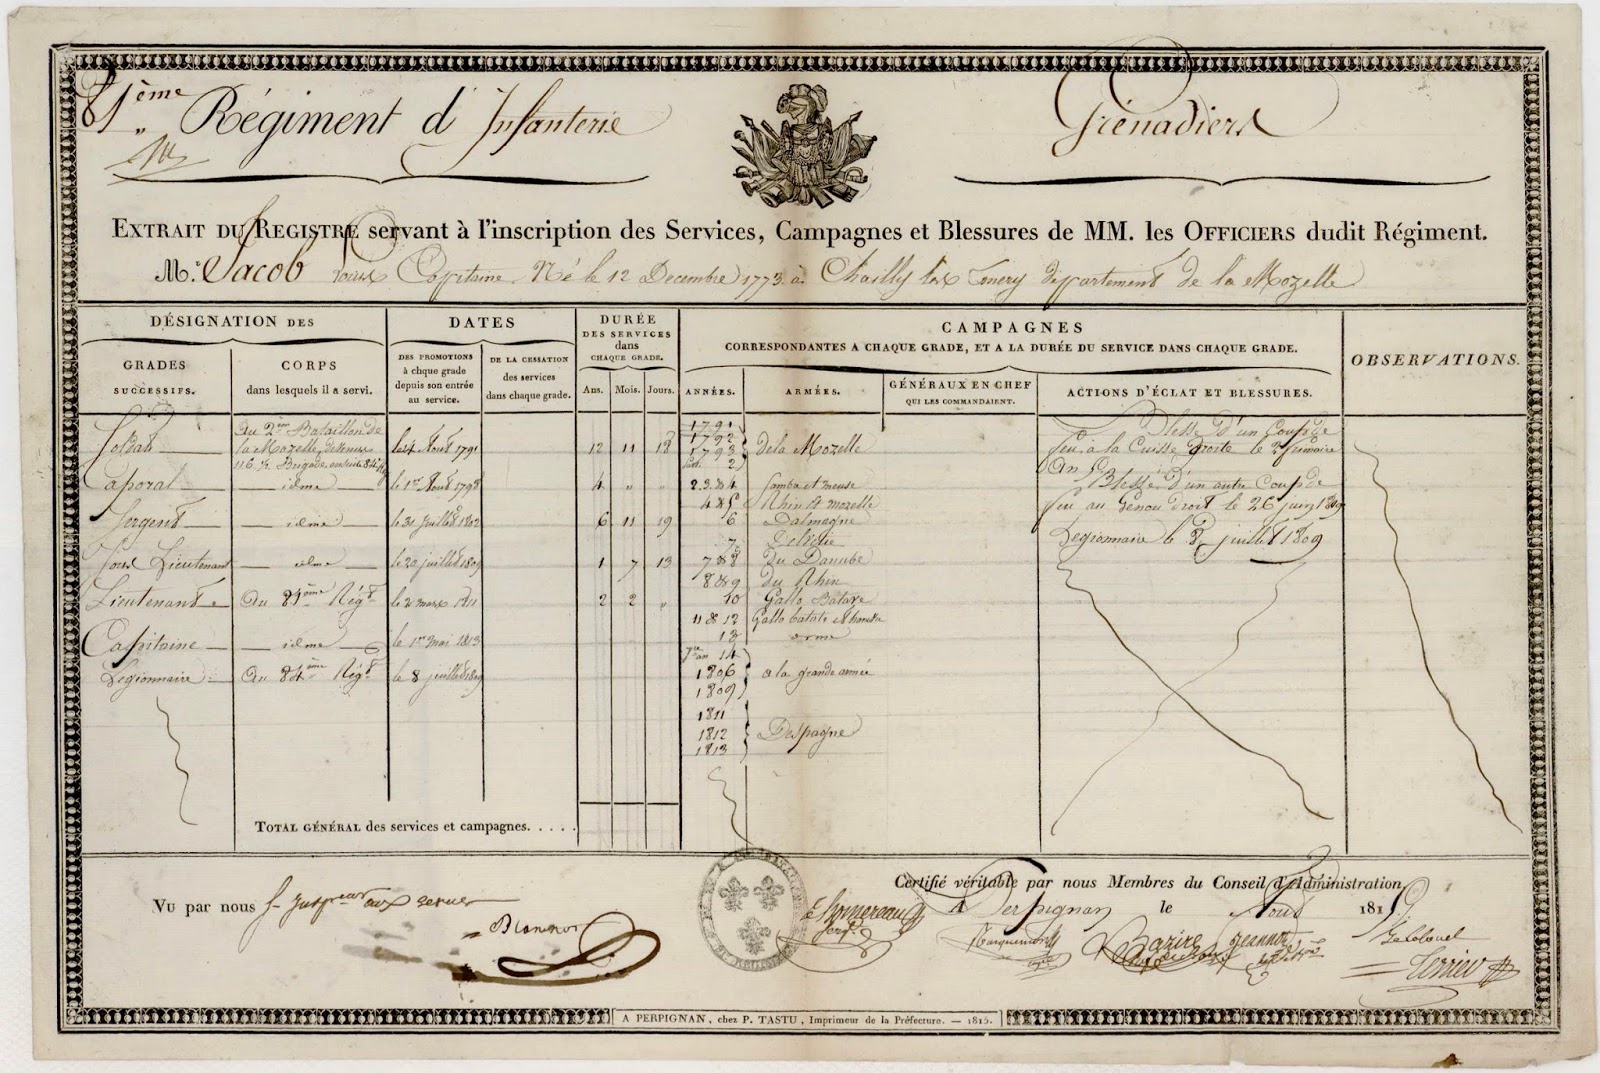 81ème Régiment d'Infanterie
Grénadiers
EXTRAIT DU REGISTRE servant à l'inscription des Services, Campagnes et Blessures de MM. les OFFICIERS dudit Régiment.
Mr. Jacob Capitaine Né le 12 Decembre 1773 à Chailly lèx département de la Mozelle
DÉSIGNATION DES
GRADES SUCCESSIFS.
CORPS dans lesquels il a servi.
DATES
DES PROMOTIONS à chque grade depuis son entrée au service.
DE LA CESSATION des services dans chaque grade.
DURÉE DES SERVICES dans CHAQUE GRADE.
Ans. Mois. Jours.
CAMPAGNES
CORRESPONDANTES A CHAQUE GRADE, ET A LA DURÉE DU SERVICE DANS CHAQUE GRADE.
ANNÉES. ARMÉES.
GÉNÉRAUX EN CHEF QUI LES COMMANDAIENT.
ACTIONS D'ÉCLAT ET BLESSURES.
OBSERVATIONS.
Soldat
Du 2me Bataillon de
la Mozelle
Aout 1791
12 11 18
Caporal idme le 1er Aout 1798 4 " "
Sergent idme le 31 Juillet 1802 6 11 19
Sous Lieutenant idme le 20 juillet 1809 1 7 13
Lieutenant Au 81ème Régt le 2 mars 1811 2 2 "
Capitaine idme le 1er mai 1813
Legionnaire Au 84ème Régt le 8 juillet 1809
1791
1792
1793
2
de la Mozelle
2.3.&4 Sambre et meuse
4&5 Rhin et mozelle
6 Dalmagne
7
7&8 Du Danube
8&9 du Rhin
10 Gallo Batave
11&12 Gallo batave
13
an 14
1806
1809
a la grande armée
1811
1812
1813
Despagne
Blessé d'un Coup de
feu à la Cuisse droite le 2
an 5 Blessé d'un autre Coup de
feu au Genou droit le 26 juin 1809
Legionnaire le 8 juillet 1809
TOTAL GÉNÉRAL des services et campagnes. . . . .
VU par nous aux revues
Certifié véritable par nous Membres du Conseil d'Administration,
A Perpignan le Aout 1815
Bazire Jeannot
Le Colonel
Terrier
A PERPIGNAN, chez P. TASTU, Imprimeur de la Préfecture. — 1815.